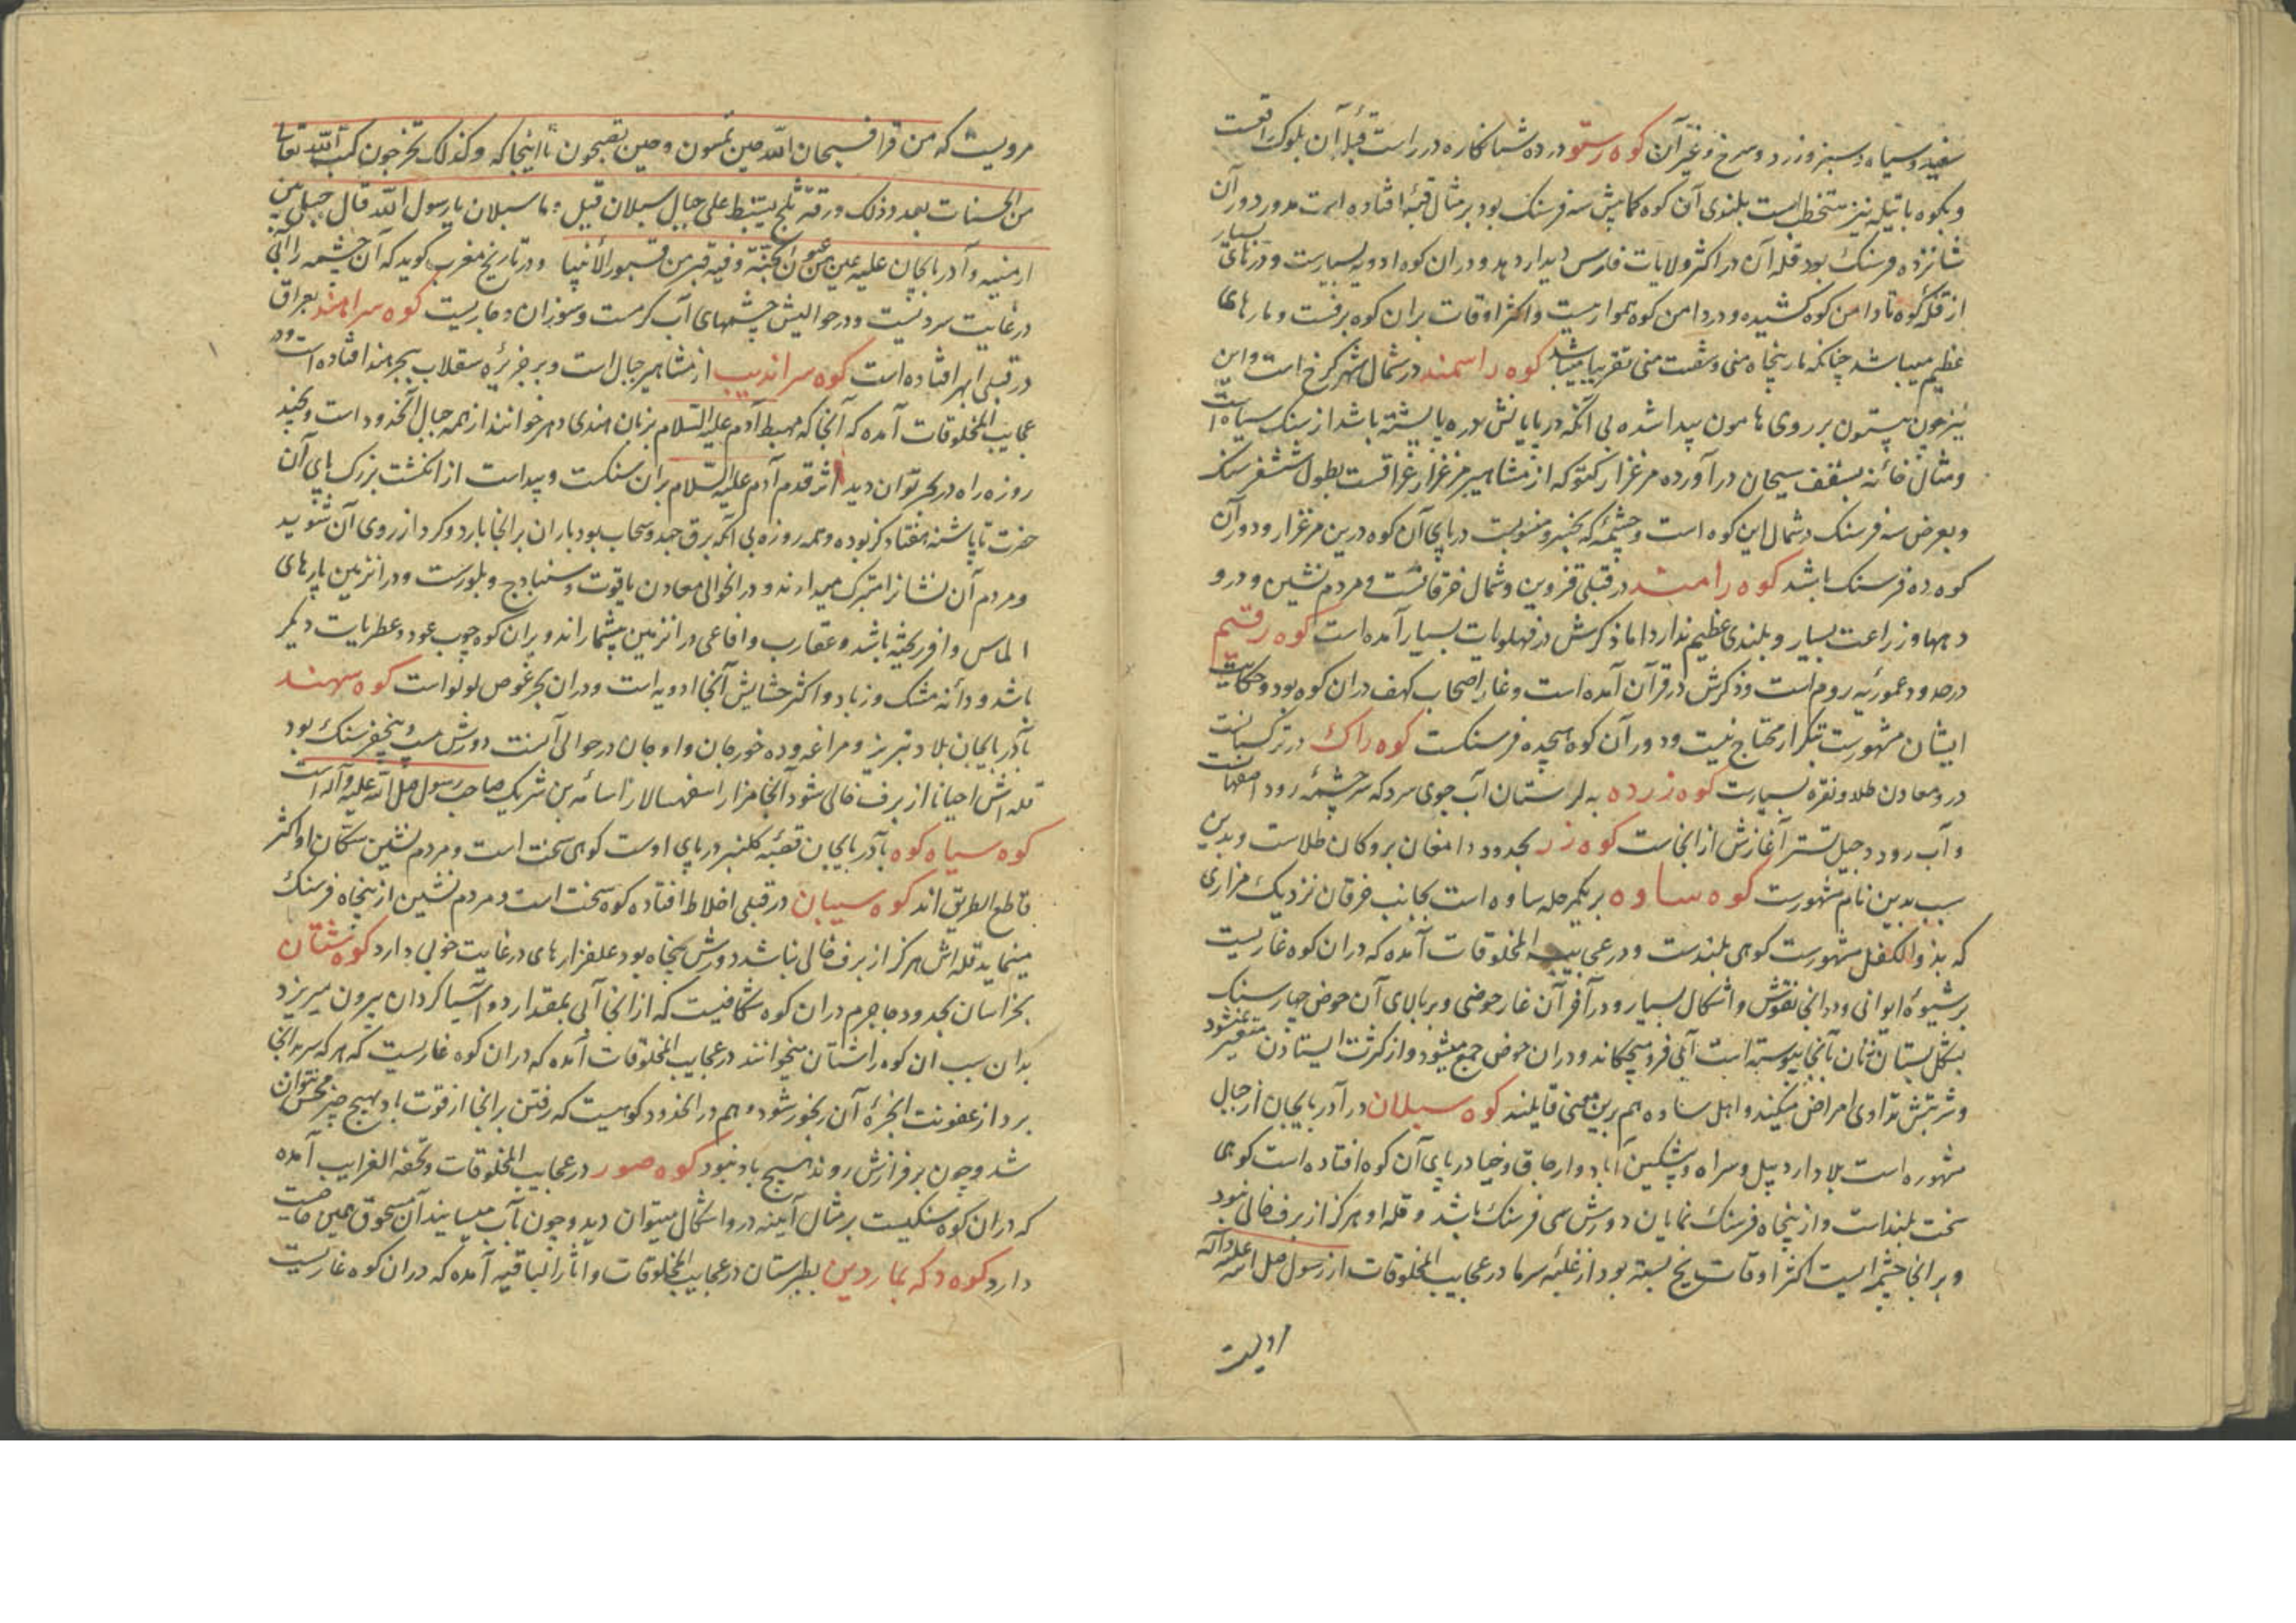 سفید و سیاه و سبز و زرد و سرخ و غیر آن کوه رستو در ده شبانکاره در راست قبله آن بلوک واقعست
و بکوه باتیله نیز متخطاست بلندی آن کوه کمابیش سه فرسنک بود بر مثال قبه افتاده است مدور دور آن
شانزده فرسنک بود قله آن در اکثر ولایات فارس دیدار دهد و در ان کوه ادویه بسیارست و درتهای بسیار
از قله کوه تا دامن کوه کشیده و در دامن کوه هموارست و اکثر اوقات بران کوه برفست و مارهای
عظیم میباشد چنانکه مار پنجاه منی و شصت منی تقریبا میباشد کوه راسمند در شمال شهر کرخ است و این
نیز چون بیستون بر روی هامون پیدا شده بی آنکه در پایانش دره یا پشته باشد از سنک سیاهست
و مثال خانه بسقف سیحان در آورده مرغزار کیتو که از مشاهیر مرغزار عراقست بطول شش فرسنک
و بعرض سه فرسنک در شمال این کوه است و چشمه که بخسرو منسوبست در پای آن کوه درین مرغزار و دور آن
کوه ده فرسنک باشد کوه رامند در قبلی قزوین و شمال خرقانست و مردم نشین و درو
دیهها و زراعت بسیار و بلندی عظیم ندارد اما ذکرش در فهلویات بسیار آمده است کوه رقیم
در حدود عموریه روم است و ذکرش در قرآن آمده است و غار اصحاب کهف دران کوه بود و حکایت
ایشان مشهورست بتکرار محتاج نیست و دور آن کوه هیجده فرسنکست کوه راک در ترکستانست
درو معادن طلا و نقره بسیارست کوه زرده به لرستان آب جوی سرد که سرچشمه رود اصفهانست
و آب رود دجیل تستر آغازش از انجاست کوه زر بحدود دامغان برو کان طلاست و بدین
سبب بدین نام مشهورست کوه ساوه بر یکمرحله ساوه است بجانب خرقان نزدیک مزاری
که بذوالکفل مشهورست کوهی بلندست و در عجایب المخلوقات آمده که دران کوه غاریست
بر شیوه ایوانی و در انجا نقوش و اشکال بسیار و در آخر آن غار حوضی و بر بالای آن حوض چهار سنک
بشکل پستان زنان بآنجا پیوسته است آبی فرو میچکاند و دران حوض جمع میشود و از کثرت ایستادن متغیر نمیشود
و شربتش تداوی امراض میکنند و اهل ساوه هم برین معنی قایلند کوه سبلان در آذربایجان از جبال
مشهوره است بلاد اردبیل و سراه و پیشکین آباد و ارجاق و خیا در پای آن کوه افتاده است کوهی
سخت بلند است و از پنجاه فرسنک نمایان دورش سی فرسنک باشد و قله او هرکز از برف خالی نبود
و بر انجا چشمه ایست اکثر اوقات یخ بسته بود از غلبه سرما در عجایب المخلوقات از رسول صلی الله علیه و آله
مرویست که من قرا فسبحان الله حین تمسون و حین تصبحون تا اینجا که و کذلک تخرجون کتب الله تعالی
من الحسنات بعدد ذلک ورقة ثلج یسقط علی جبل سبلان قیل و ما سبلان یا رسول الله قال جبل بین
ارمنیه و آذربایجان علیه عین من عیون الجنة و فیه قبر من قبور الانبیا و در تاریخ مغرب کوید که آن چشمه را آبی
در غایت سردیست و در حوالیش چشمهای آب کرمست و سوزان و جاریست کوه سراهند بعراق
در قبلی ابهر افتاده است کوه سراندیب از مشاهیر جبال است و بر جزیره سقلاب ببحر هند افتاده است و در
عجایب المخلوقات آمده که آنجا که مهبط آدم علیه السلام بزبان هندی دهر خوانند از همه جبال آنحدود است و بچند
روزه راه در بحر توان دید اثر قدم آدم علیه السلام بران سنکست و پیداست از انکشت بزرک پای آن
حضرت تا پاشنه هفتاد کز بوده و همه روزه بی آنکه برق جهد و سحاب بود باران بر انجا بارد و کرد از روی آن شوید
و مردم آن نشانرا متبرک میدارند و در انحوالی معادن یاقوت و سنبادج و بلورست و در انزمین پارهای
الماس وافر ریخته باشد و عقارب و افاعی در انزمین بیشمار اند و بران کوه چوب عود و عطریات دیکر
باشد و دانه مشک و زباد و اکثر حشایش آنجا ادویه است و دران بحر غوص لولو است کوه سهند
بآذربایجان بلاد تبریز و مراغه و ده خورجان و اوجان در حوالی آنست دورش بیست و پنج فرسنک بود
قله اش احیانا از برف خالی شود آنجا مزار اسفهسالار اسامه بن شریک صاحب رسول صلی الله علیه و آله است
کوه سیاه کوه بآذربایجان قصبه کلنبر در پای اوست کوهی سخت است و مردم نشین سکان او اکثر
قاطع الطریق اند کوه سیبان در قبلی اخلاط افتاده کوه سخت است و مردم نشین از پنجاه فرسنک
مینماید قله اش هرکز از برف خالی نباشد دورش پنجاه بود علفزارهای در غایت خوبی دارد کوه شتان
بخراسان بحدود جاجرم دران کوه شکافیست که از انجا آبی بمقدار دو آسیا کردان بیرون میریزد
بدان سبب ان کوه را شتان میخوانند در عجایب المخلوقات آمده که دران کوه غاریست که هر که سر بدانجا
برد از عفونت ابخره آن رنجور شود و هم در انحدود کوهیست که رفتن بر انجا از قوت باد بهیچ چیز محسن نتوان
شد و چون بر فرازش روند هیچ باد نبود کوه صور در عجایب المخلوقات و تحفه الغرایب آمده
که دران کوه سنکیست بر مثال آیینه درو اشکال میتوان دید و چون بآب میسایند آن مسحوق همین خاصیت
دارد کوه دکه بماردین بطبرستان در عجایب المخلوقات و آثار الباقیه آمده که دران کوه غاریست